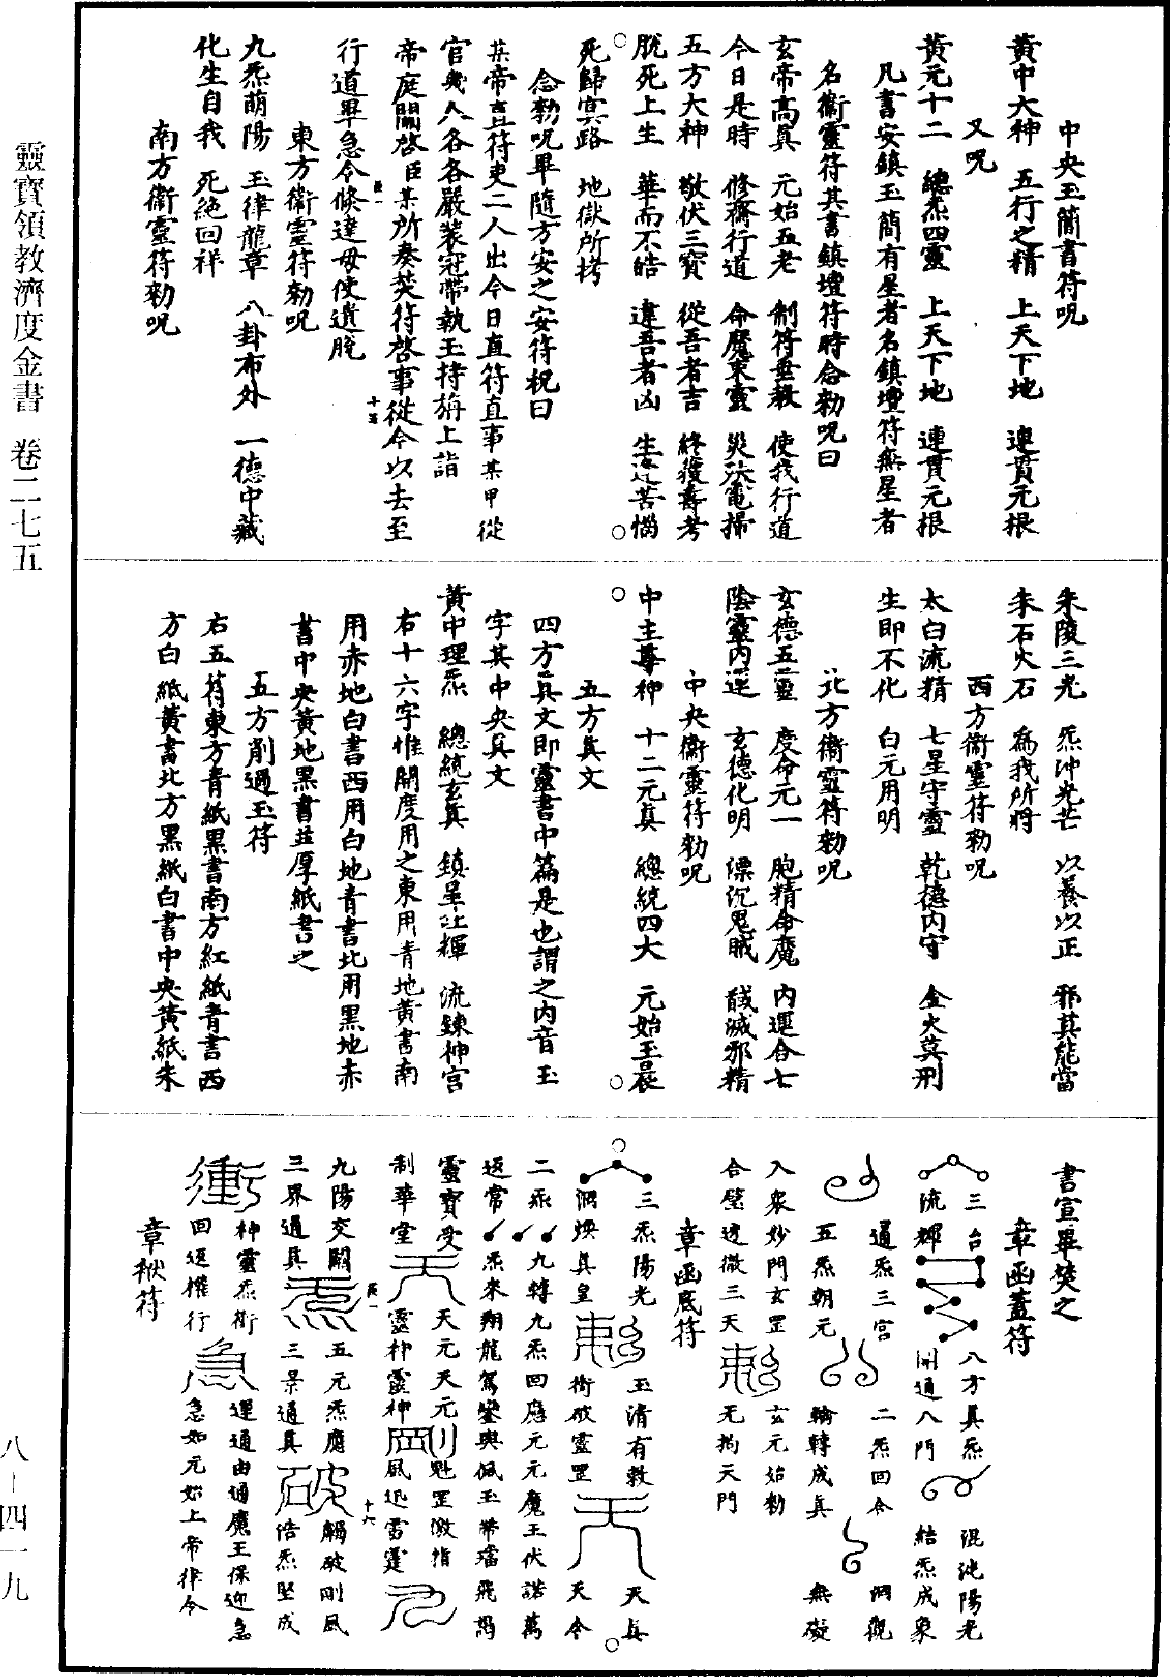 中央玉簡書符呪
黃中大神　五行之精　上天下地　連貫元根
又呪
黃元十二　總炁四靈　上天下地　連貫元根
凡書安鎮玉簡有星者名鎮壇符無星者
名衛靈符其書鎮壇符時念勑呪曰
玄帝高真　元始五老　制符垂教　使我行道
今日是時　修齋行道　命魔束靈　災決電掃
五方大神　敬伏三寶　從吾者吉　終獲壽考
脫死上生　華而不皓　違吾者凶　生返苦惱
死歸冥路　地獄所拷
念勑呪畢隨方安之安符祝曰
某帝直符吏二人出今日直符直事某甲從
官幾人各各嚴裝冠帶執玉持旃上詣
帝庭關啓臣某所奏焚符啓事從今以去至
行道畢急令條達毋使遺脫
東方衛靈符勑呪
九炁萌陽　玉律龍章　八卦布外　一德中藏
化生自我　死絕回祥
南方衛靈符勑呪
朱陵三光　炁沖光芒　以養以正　邪莫能當
朱石火石　為我所將
西方衛靈符勑呪
太白流精　七星守靈　乾德內守　金火莫刑
生即不化　白元用明
北方衛靈符勑呪
玄德五靈　度命元一　胞精命魔　內運合七
陰靈內運　玄德化明　漂沉鬼賊　馘滅邪精
中央衛靈符勑呪
中主尊神　十二元真　總統四大　元始玉晨
五方真文
四方真文即靈書中篇是也謂之內音玉
字其中央真文
黃中理炁　總統玄真　鎮星吐輝　流鍊神宮
右十六字惟開度用之東用青地黃書南
用赤地白書西用白地青書北用黑地赤
書中央黃地黑書並厚紙書之
五方削過玉符
右五符東方青紙黑書南方紅紙青書西
方白紙黃書北方黑紙白書中央黃紙朱
書宣畢焚之
章函蓋符
三台　八方真炁　混沌陽光
流輝　開通八門　結炁成象
通炁三宮　二炁回令　洞觀
五炁朝元　輪轉成真　無礙
入衆妙門玄罡　玄元始勑
合璧透徹三天　勑　无拘天門
章函底符
三炁陽光　勑　玉清有敕　天　天真
洞煥真皇　衝破靈罡　天令
二炁　九轉九炁回應元元魔王伏諾萬
返常　炁來翔龍駕鑾輿佩玉帶璫飛罡
靈寶受　天　天元天元　剛　魁罡激指
制華堂　靈神靈神　風迅雷霆
九陽交關　炁　五元炁應　破　觸破剛風
三界通真　三景通真　浩炁堅成
衝　神靈炁衝　急　運通由通魔王保迎急
回返權行　急如元始上帝律令
章袱符
靈寶領教濟度金書　卷二七五
八－四一九